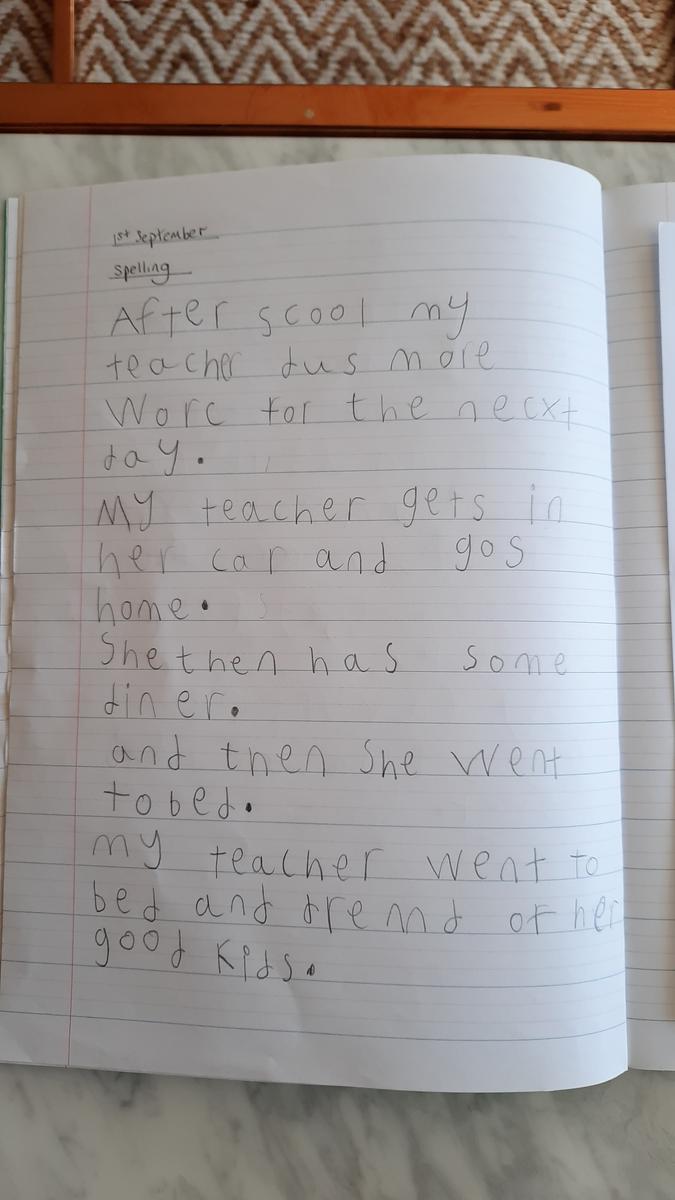 1st September
Spelling
After scool my
teacher dus more
Worc for the necxt
day.
My teacher gets in
her car and gos
home.
She then has some
diner.
and then She went
to bed.
my teacher went to
bed and dremd of her
good kids.